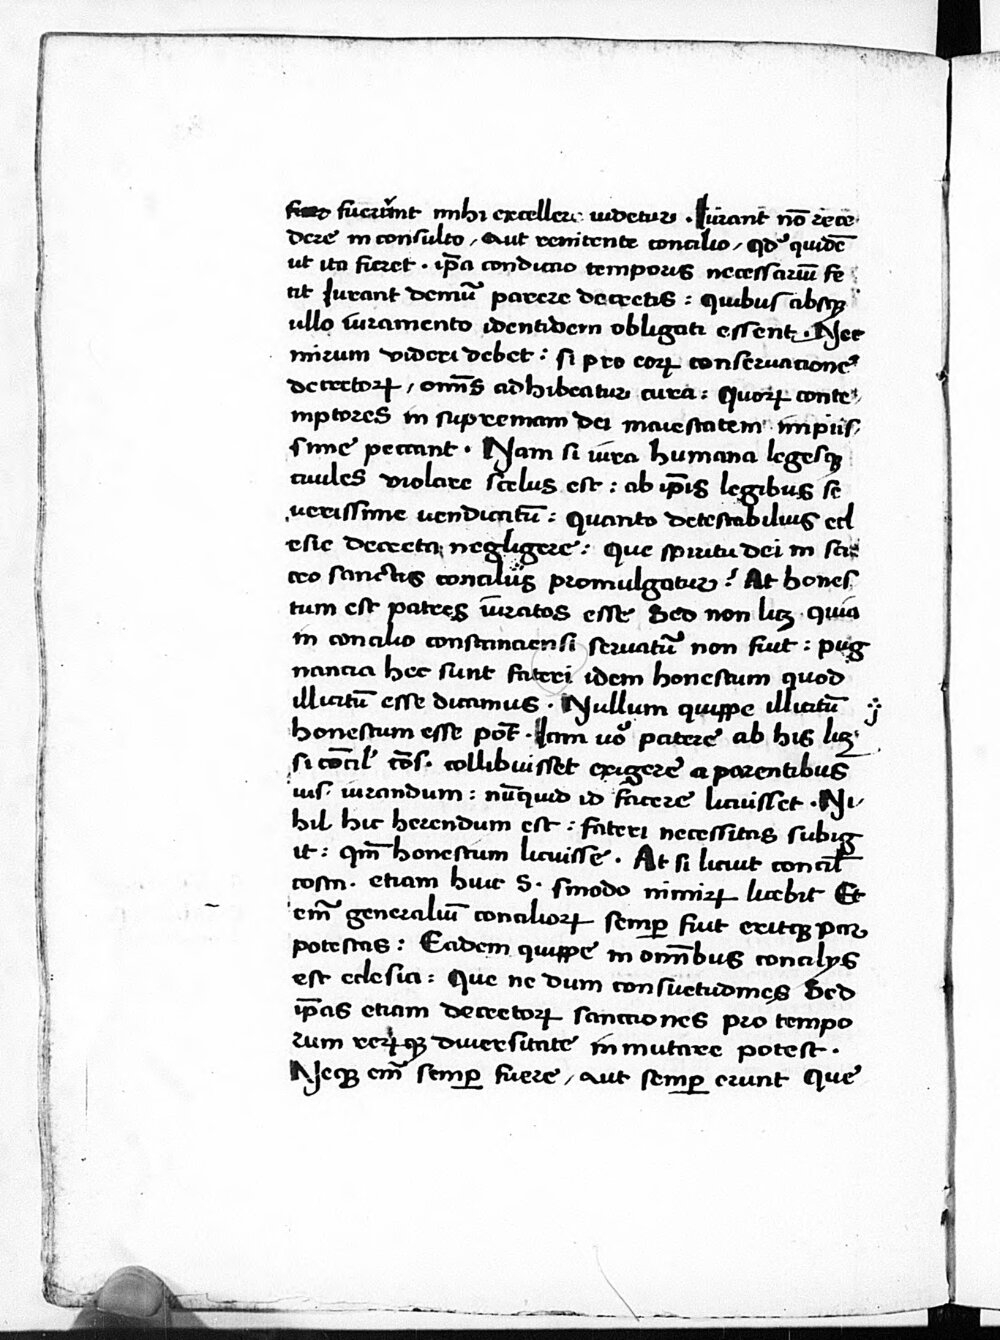 fuerūnt mihi excellere uidetur . Iurant nō rece
dere inconsulto / aut renitente concilio / qd' quidē
ut ita fieret . ip̄a condicio temporis necessariū fe
cit Iurant demū parere decretis : quibus absq̨
ullo iuramento identidem obligati essent . Nec
mirum videri debet : si pro eoꝝ conseruatione
decretoꝝ / omīs adhibeatur cura : Quoꝝ conte
mptores in supremam dei maiestatem impiis
sime peccant . Nam si iura humana legesq̨
ciuiles violare scelus est : ab ip̄is legibus se
uerissime uendicatū : Quanto detestabilius eccl
esie decreta negligere : Que spiritu dei in sa
cro sanctis conciliis promulgatur ? At hones
tum est patres iuratos esse Sed non licꝫ quia
in concilio constanciensi seruatū non fuit : pug
nancia hec sunt fateri idem honestum quod
illicitū esse dicimus . Nullum quippe illicitū
honestum esse pot̄ . Iam uo᷒ patere ab his licꝫ
si cōcil' cōs . collibuisset exigere a parentibus
ius iurandum : nūquid id facere licuisset . Ni
hil hic herendum est : fateri necessitas subig
it : qm̄ honestum licuisse . At si licuit concil'
cosn . etiam huic S . sinodo nimiꝝ licebit Et
em̄ generaliū conciliorꝝ semp̱ fuit eritq̨ par
potestas : Eadem quippe in om̄ibus concilijs
est eclesia : Que ne dum consuetudines Sed
ip̄as etiam decretoꝝ sanctiones pro tempo
rum rerūq̨ diuersitate inmutare potest .
Neq̨ em̄ semp̱ fuere / aut semp̱ erunt Que